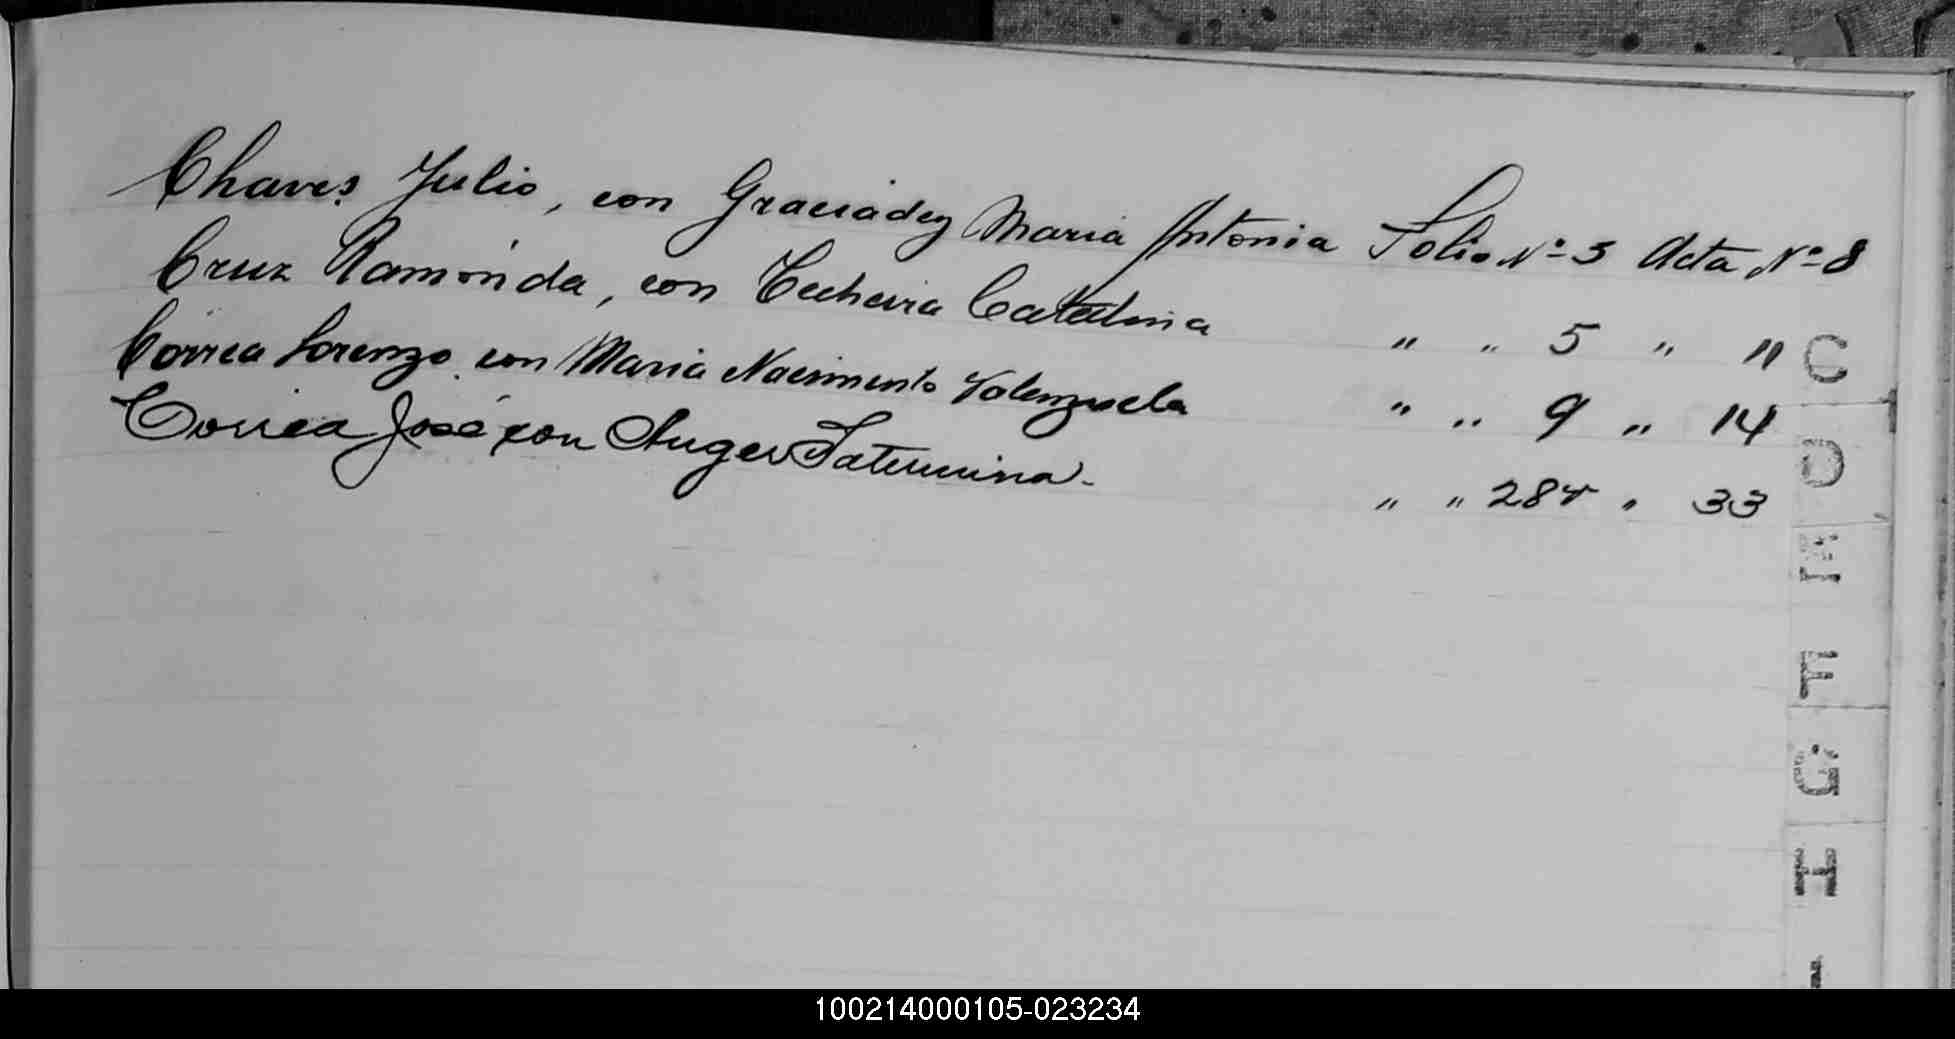 Chaves Julio, con Graciadey Maria Antonia Folio Nº 5 Acta Nº 8
Cruz Ramonda, con Techeira Catalina " " 5 " 11
Correa Lorenzo con Maria Nacimento Valenzuela " " 9 " 14
Correa José con Auger Saturnina. " " 28 " 33
C
D
E
F
G
H
100214000105-023234